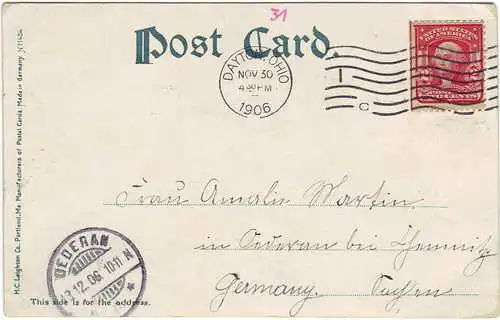 31
Post Card.
DAYTON, OHIO
NOV 30
4 30 PM
1906
1
C
UNITED STATES
OF AMERICA
TWO CENTS
H.C. Leighton Co. Portland, Me. Manufacturers of Postal Cards. Made in Germany.
Frau Amalie Martin
in Oederan bei Chemnitz
Germany. Sachsen
OEDERAN
12.06. 10-11 N
*
This side is for the address.